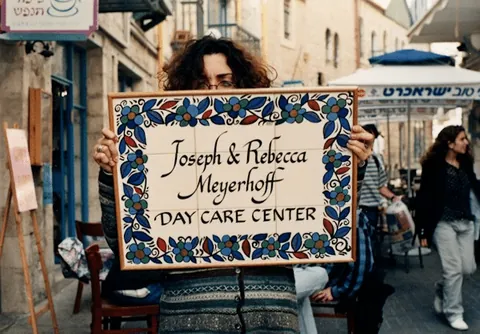 Joseph & Rebecca
Meyerhoff
DAY CARE CENTER
ישראכרט